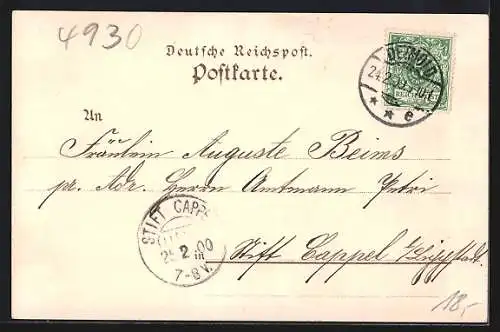 4930
Deutsche Reichspost.
Postkarte.
DETMOLD
24.2.
* * e
An
Fräulein Auguste Beims
pr. Adr. Herrn Amtmann Petri
STIFT CAPPEL
25 2 00
7-8 V.
in
Stift Cappel b/Lippstadt.
18,-